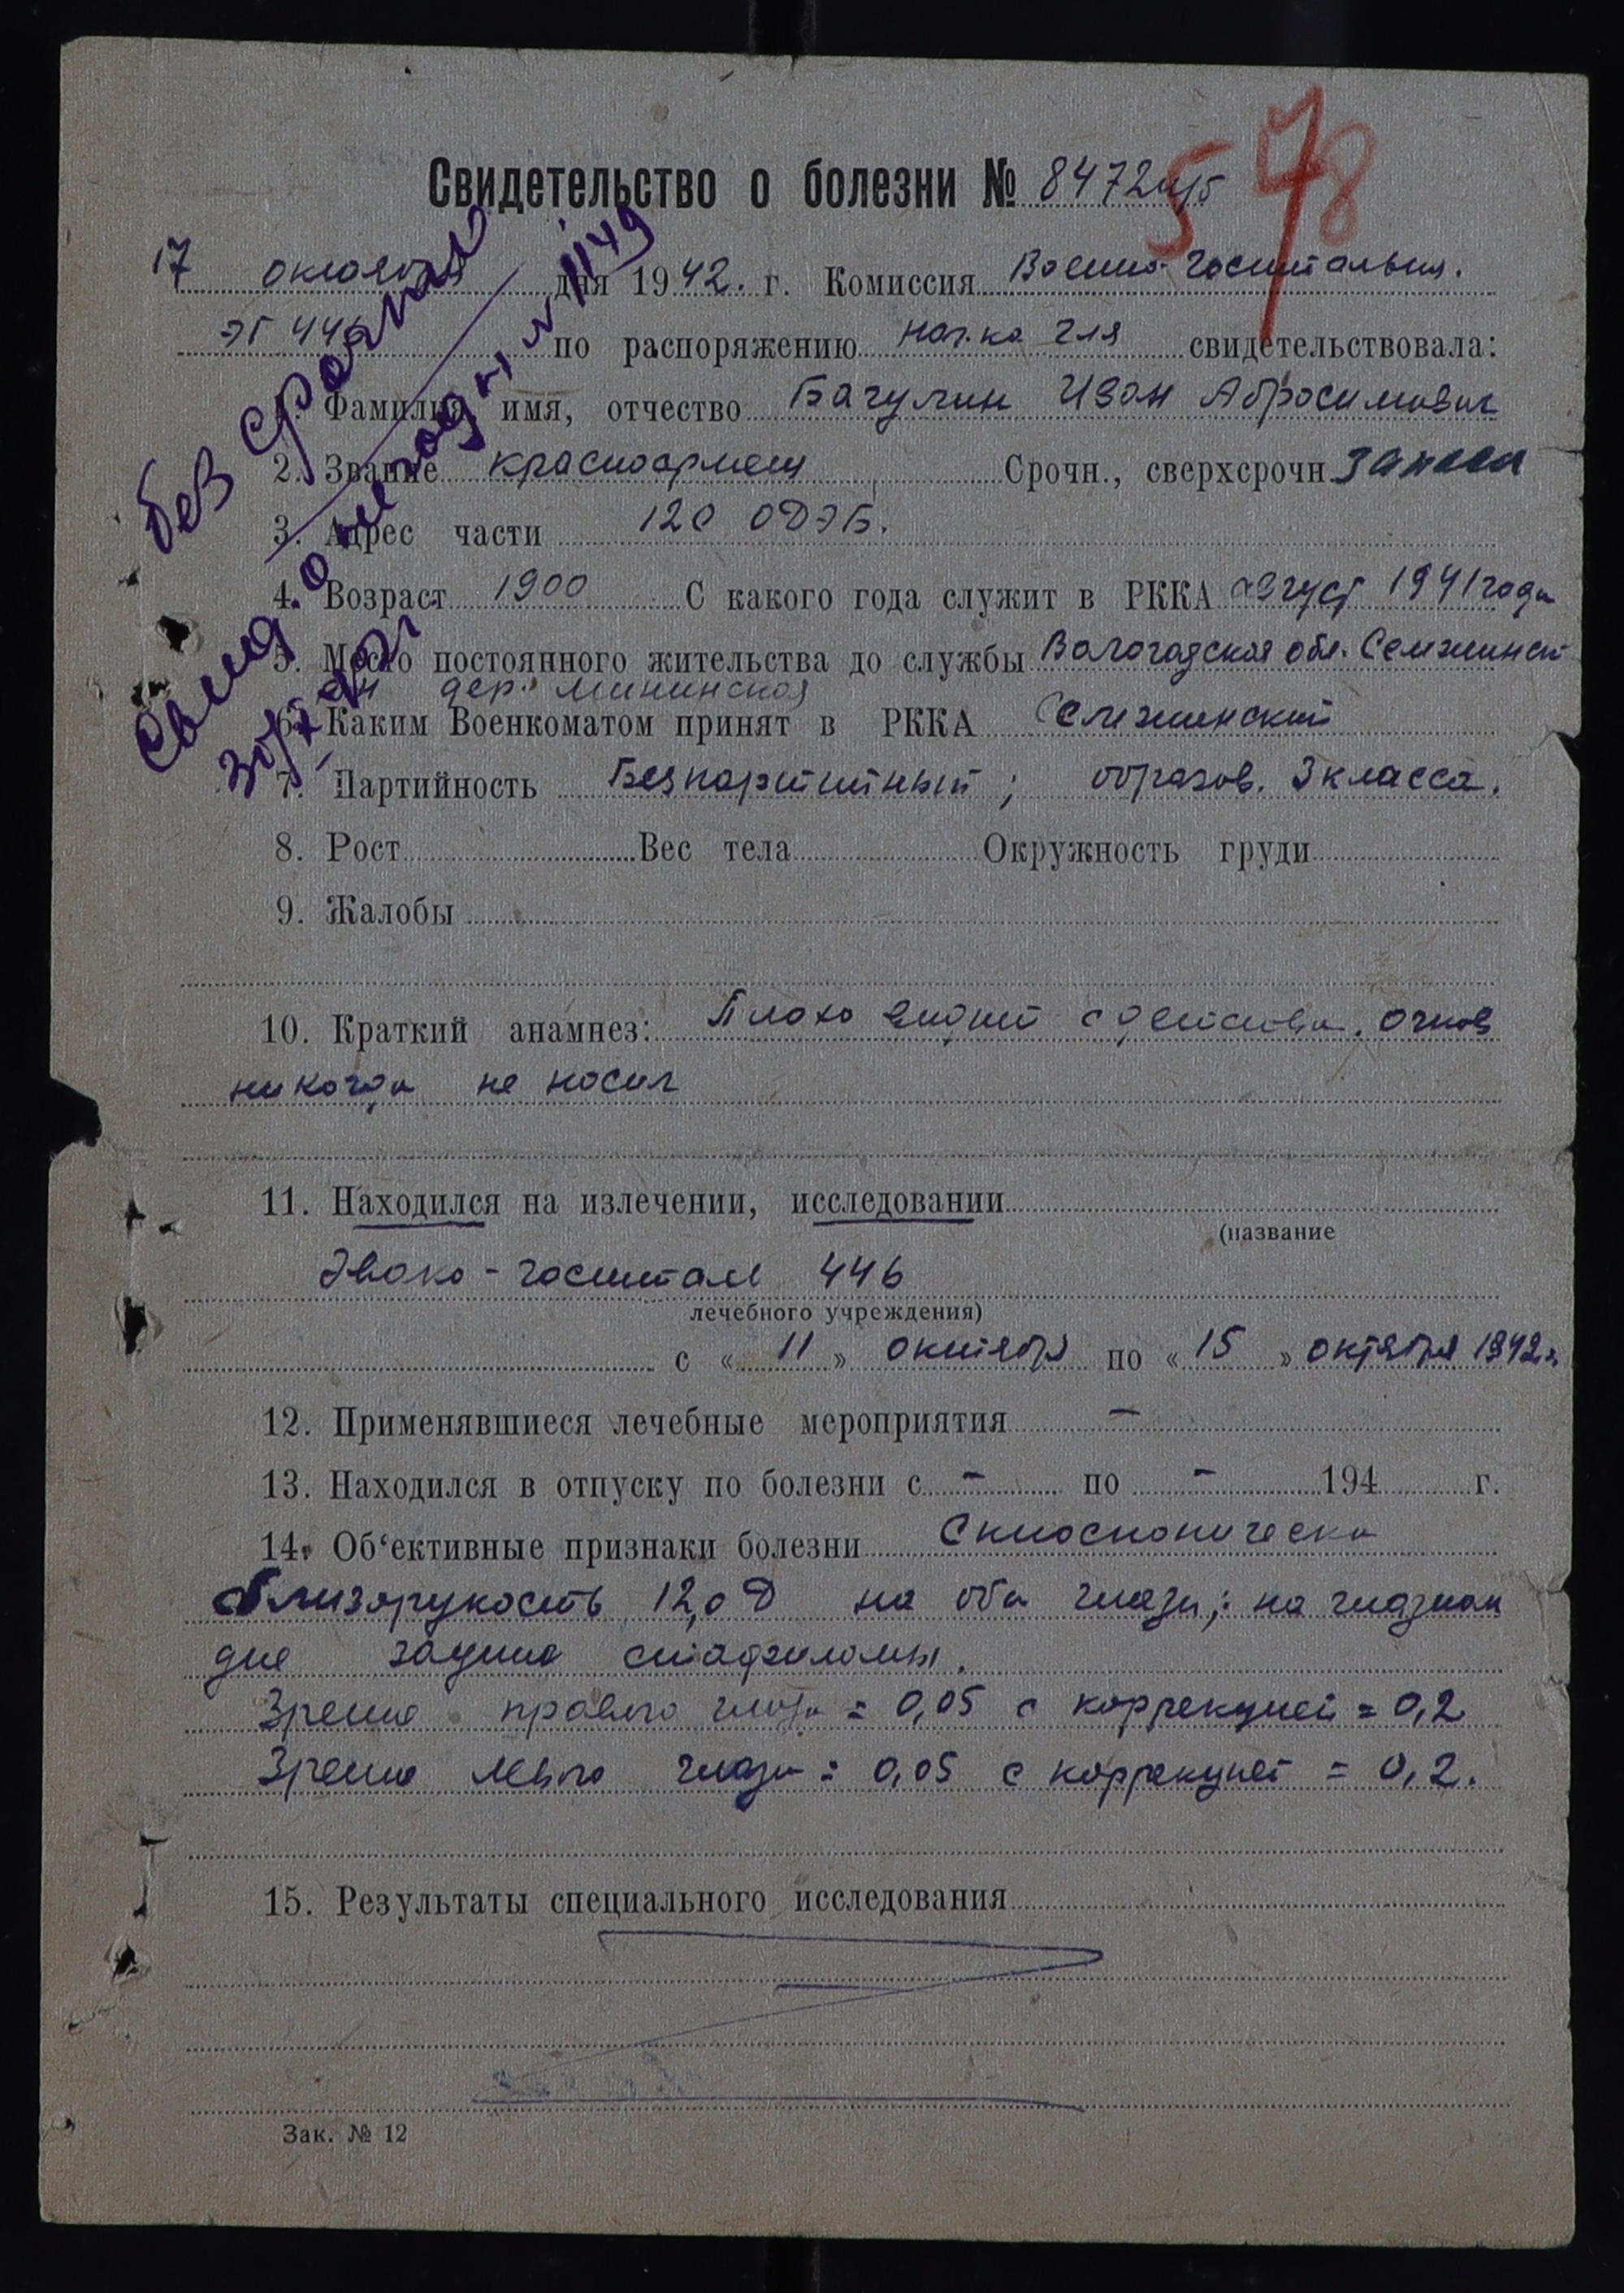 578
Свидетельство о болезни № 8472
17 октября дня 1942. г. Комиссия Военно-госпитальн.
ЭГ 446 по распоряжению нач-ка г-ля свидетельствовала:
1. Фамилия, имя, отчество Бачулин Иван Абросимович
2. Звание красноармеец Срочн., сверхсрочн. запаса
3. Адрес части 120 ОДЭБ.
4. Возраст 1900 С какого года служит в РККА август 1941 года
5. Место постоянного жительства до службы Вологодская обл. Семжинский
р-н дер. Мининская
6. Каким Военкоматом принят в РККА Семжинский
7. Партийность Безпартийный; образов. 3 класса.
8. Рост Вес тела Окружность груди
9. Жалобы
10. Краткий анамнез: Плохо видит с детства. Очков
никогда не носил
11. Находился на излечении, исследовании
(название
Эвако-госпитале 446
лечебного учреждения)
с « 11 » октября по « 15 » октября 1942 г.
12. Применявшиеся лечебные мероприятия —
13. Находился в отпуску по болезни с - по - 194 г.
14. Об‘ективные признаки болезни Скиоскопически
близорукость 12,0 Д на оба глаза; на глазном
дне задние стафиломы.
Зрение правого глаза = 0,05 с коррекцией = 0,2
Зрение левого глаза = 0,05 с коррекцией = 0,2.
15. Результаты специального исследования
Зак. № 12
без
о не годн. № 1149